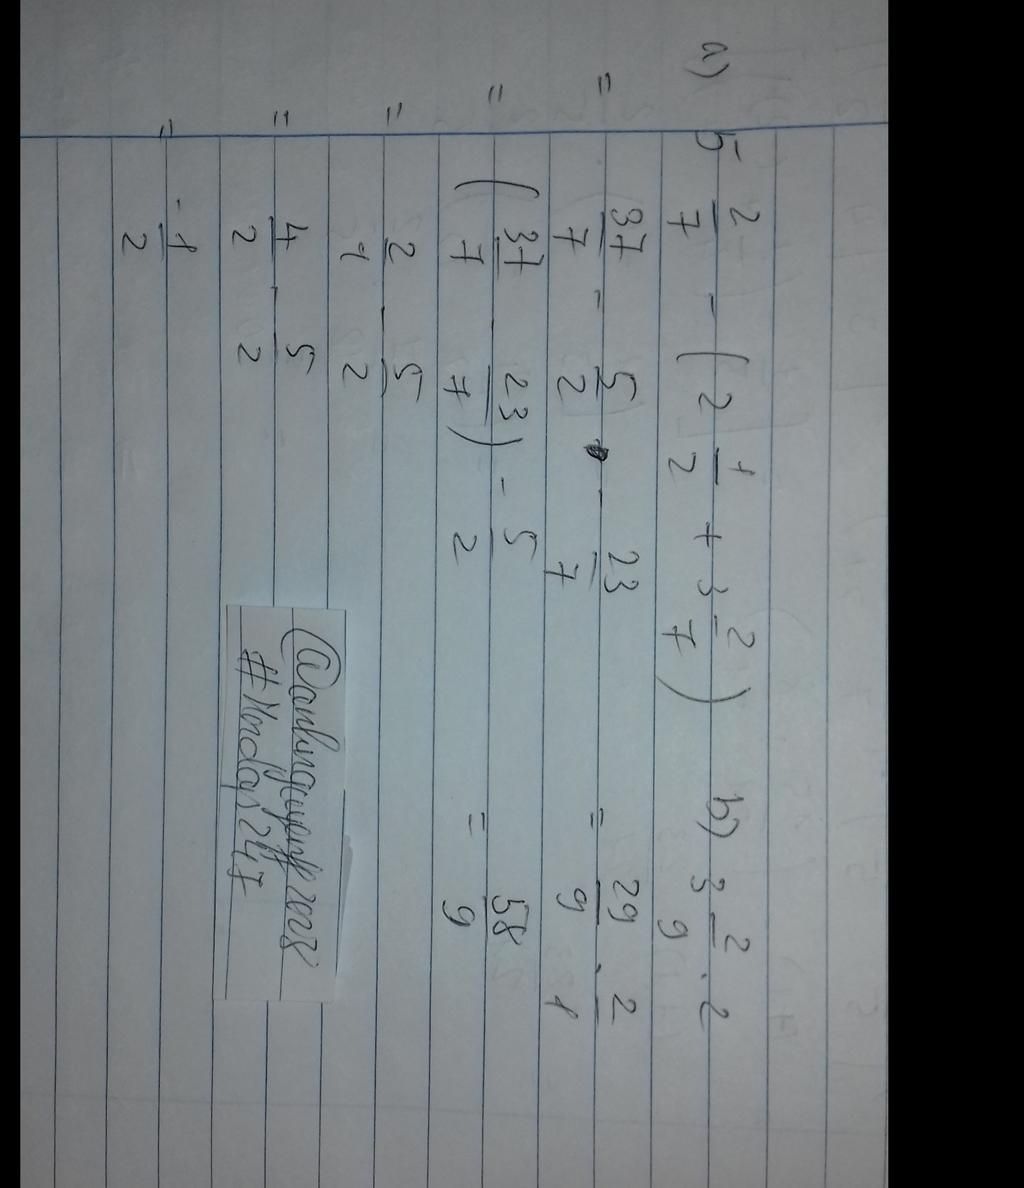 a) 5 2/7 - (2 1/2 + 3 2/7)
= 37/7 - 5/2 - 23/7
= (37/7 - 23/7) - 5/2
= 2/1 - 5/2
= 4/2 - 5/2
= -1/2
b) 3 2/9 . 2
= 29/9 . 2/1
= 58/9
#Hoidap247